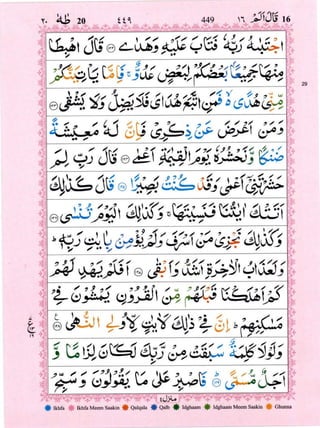 ٢٠ طٰهٰ 20 ٤٤٩ 449 ١٦ قَالَ اَلَمْ 16
اجْتَبٰىهُ رَبُّهٗ فَتَابَ عَلَيْهِ وَهَدٰى ﴿١٢٢﴾ قَالَ اهْبِطَا
مِنْهَا جَمِيْعًۢا بَعْضُكُمْ لِبَعْضٍ عَدُوٌّ ۚ فَاِمَّا يَاْتِيَنَّكُمْ
مِّنِّيْ هُدًى ۙ فَمَنِ اتَّبَعَ هُدَايَ فَلَا يَضِلُّ وَلَا يَشْقٰى ﴿١٢٣﴾
29
وَمَنْ اَعْرَضَ عَنْ ذِكْرِيْ فَاِنَّ لَهٗ مَعِيْشَةً
ضَنْكًا وَّنَحْشُرُهٗ يَوْمَ الْقِيٰمَةِ اَعْمٰى ﴿١٢٤﴾ قَالَ رَبِّ لِمَ
حَشَرْتَنِيْٓ اَعْمٰى وَقَدْ كُنْتُ بَصِيْرًا ﴿١٢٥﴾ قَالَ كَذٰلِكَ
اَتَتْكَ اٰيٰتُنَا فَنَسِيْتَهَا ۚ وَكَذٰلِكَ الْيَوْمَ تُنْسٰى ﴿١٢٦﴾
وَكَذٰلِكَ نَجْزِيْ مَنْ اَسْرَفَ وَلَمْ يُؤْمِنْۢ بِاٰيٰتِ رَبِّهٖ ۭ
وَلَعَذَابُ الْاٰخِرَةِ اَشَدُّ وَاَبْقٰى ﴿١٢٧﴾ اَفَلَمْ يَهْدِ لَهُمْ
كَمْ اَهْلَكْنَا قَبْلَهُمْ مِّنَ الْقُرُوْنِ يَمْشُوْنَ فِيْ
مَسٰكِنِهِمْ ۭ اِنَّ فِيْ ذٰلِكَ لَاٰيٰتٍ لِّاُولِي النُّهٰى ﴿١٢٨﴾
وَلَوْلَا كَلِمَةٌ سَبَقَتْ مِنْ رَّبِّكَ لَكَانَ لِزَامًا وَّ
اَجَلٌ مُّسَمًّى ﴿١٢٩﴾ فَاصْبِرْ عَلٰى مَا يَقُوْلُوْنَ وَسَبِّحْ
منزل ٤
Ikhfa Ikhfa Meem Saakin Qalqala Qalb Idghaam Idghaam Meem Saakin Ghunna